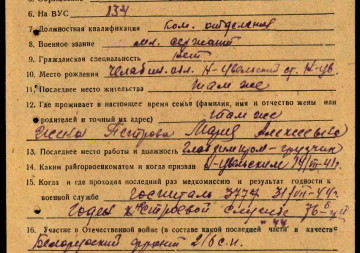 6. На ВУС 134
7. Должностная квалификация Ком. отделения
8. Военное звание мл. сержант
9. Гражданская специальность нет
10. Место рождения Челябин. обл. Н-Увельский
11. Последнее место жительства там же
12. Где проживает в настоящее время семья (фамилия, имя и отчество жены или
родителей и точный их адрес) там же
Петрова Мария Алексеевна
13. Последнее место работы и должность
14. Каким райгорвоенкоматом и когда призван Н-Увельским
15. Когда и где проходил последний раз медкомиссию и результат годности к
военной службе госпиталь 3477 31/VII-44г.
Годен к строевой службе
16. Участие в Отечественной войне (в составе какой последней части и качестве
Белорусский фронт 216 с.п.